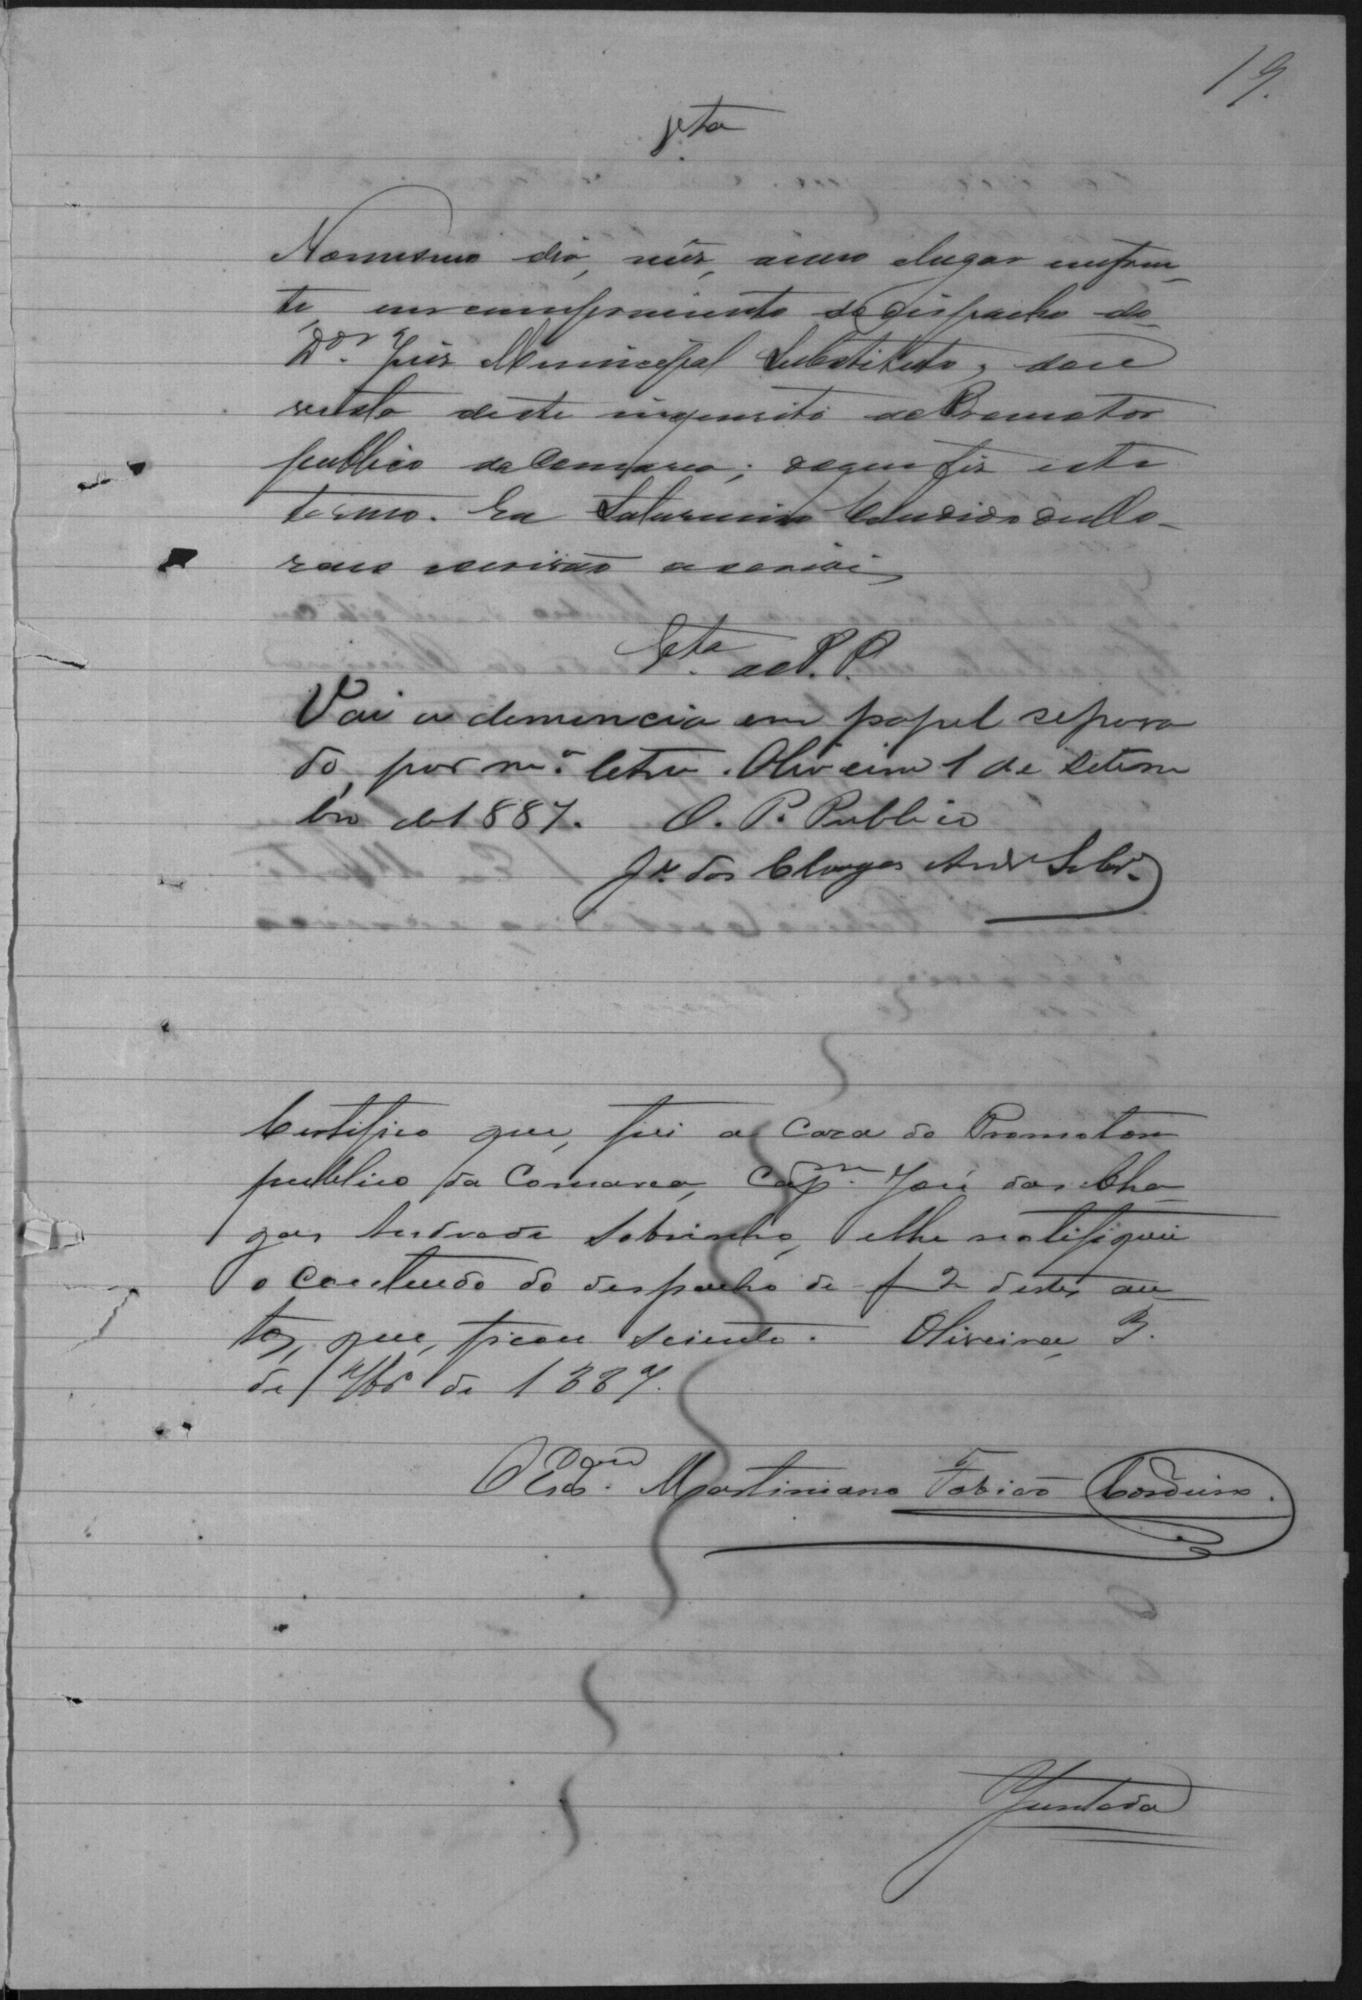 19.
Vta
No mesmo dia, mês, anno e lugar em fren-
te, em comprimento do despacho do
Dor. Juis Municipal Substituto, dou
vista deste inquerito ao Promotor
publico da Comarca; do que fiz este
termo. Eu Saturnino Candido de Mo-
raes escrivão o escrevi
Vta. ao P. P.
Vai a denuncia em papel separa
do, por ma. letra. Oliveira 1 de Setem
bro de 1887. O. P. Publico
Je. das Chagas Andre. Sobro.
Certifico que, fui a caza do Promotor
publico da Comarca, Capm. José das Cha-
gas Andrade Sobrinho, e lhe notifiquei
o contendo do despacho de f 2 destes au-
tos, que, ficou sciente. Oliveira, 3.
de 7bro de 1887.
O Escram. Martiniano Fabião Cordeiro.
Juntada